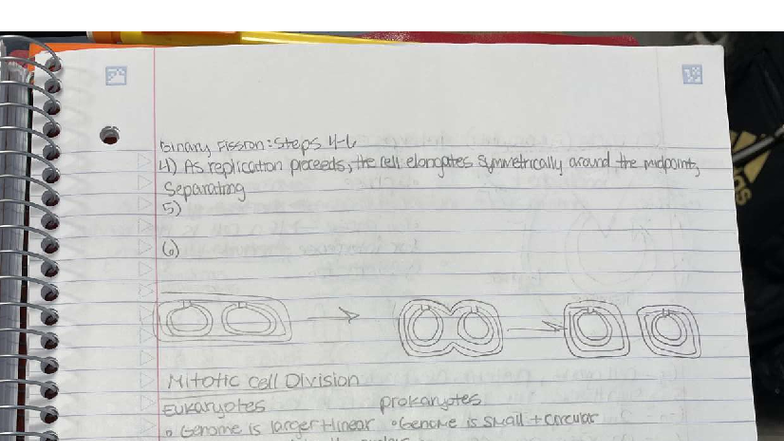 Binary Fission: Steps 4-6
4) As replication proceeds, the cell elongates symmetrically around the midpoint,
Separating
5)
6)
Mitotic Cell Division
Eukaryotes prokaryotes
Genome is larger + linear Genome is small + circular